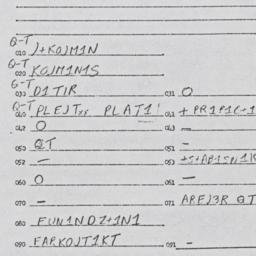 Q-T
010 )+KOJM1N
Q-T
020 KOJM1N1S
G-T
030 D1TIR 031 O
Q-T
040 PLEJTxx PLAT1! 041 + PR1P1C+1
042 O 043 –
050 QT 051 –
052 – 053 +S+AB1SN1K
060 O 061 –
070 – 071 AREJ3R QT
080 FUN1NDZ+1N1
090 FARKOJT1KT 091 –